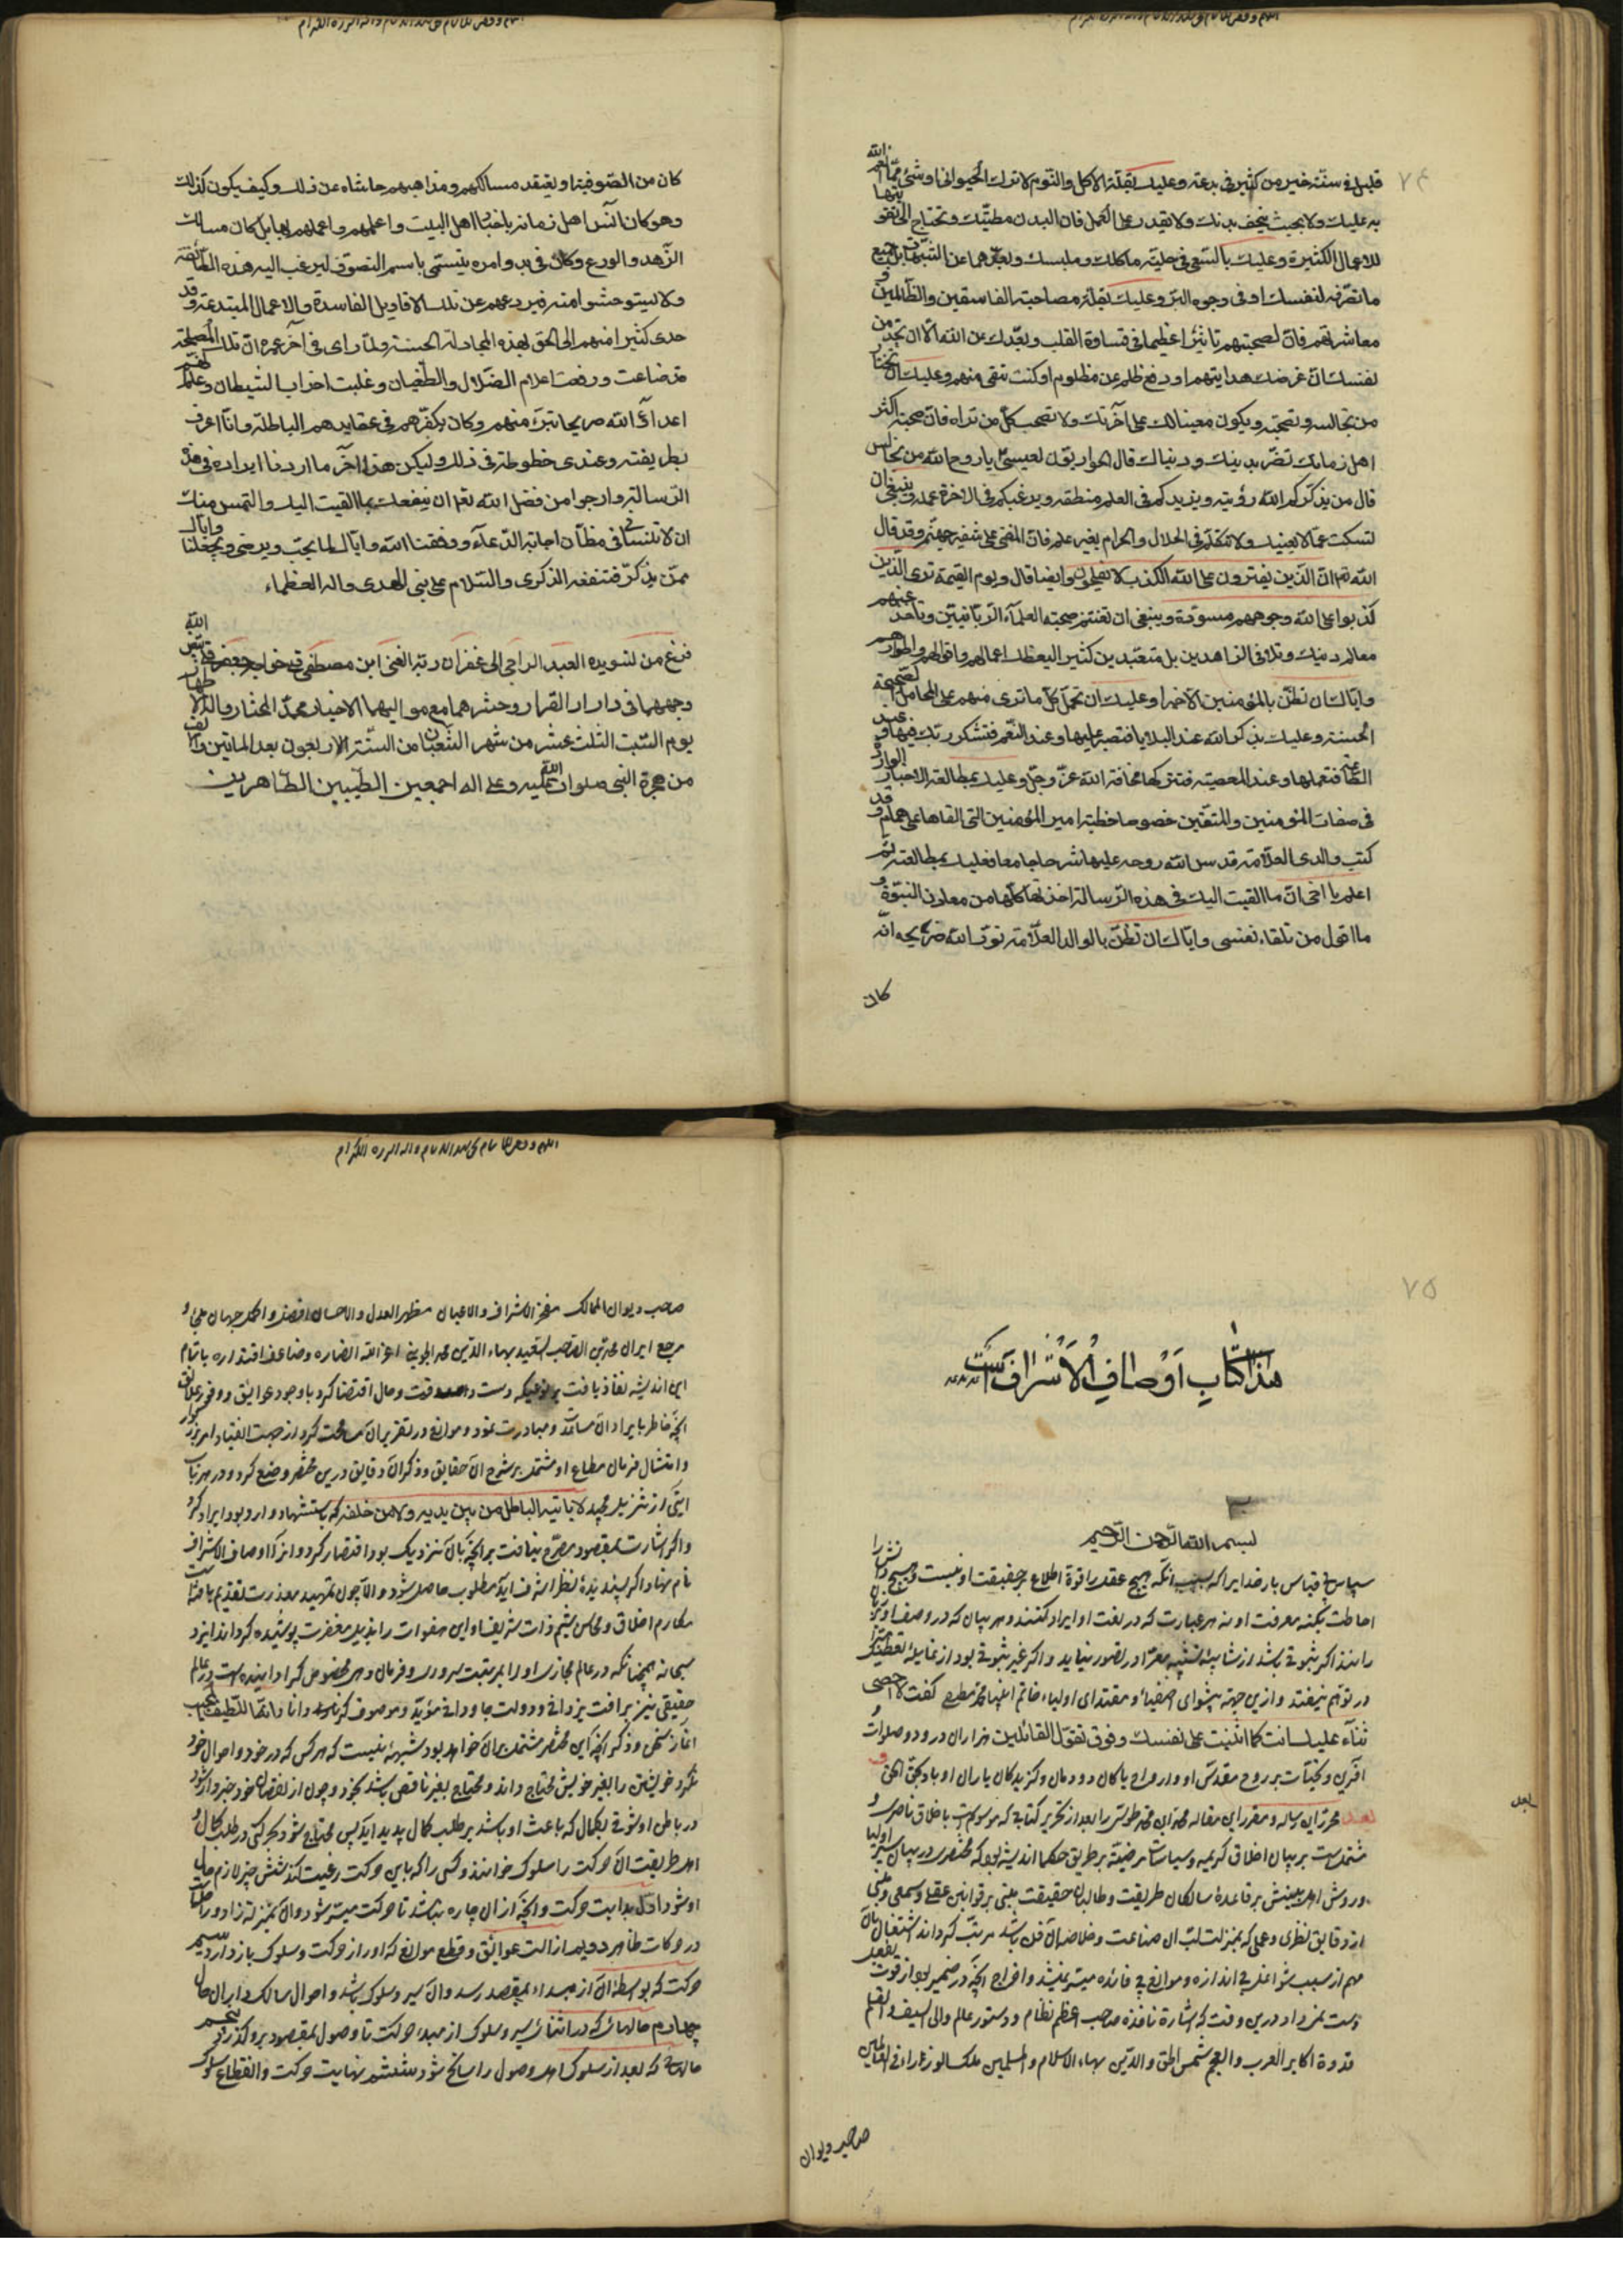 ٧٤
قليل في سنة خير من كثير في بدعة وعليك بقلة الاكل والنوم لا ترك الحيواني او شئ مما
به عليك ولا بحيث ينحف بدنك ولا تقدر على العمل فان البدن مطيتك وتحتاج الى تقويتها
للاعمال الكثيرة وعليك بالسعي في حلية ماكلك وملبسك وبعدهما عن الشبهات بل جميع
ما تصرفه لنفسك او في وجوه البر وعليك بقلة مصاحبة الفاسقين والظالمين و
معاشرتهم فان لصحبتهم تاثيرا عظيما في قساوة القلب وبعدك عن الله الا ان تجد من
نفسك ان غرضك هدايتهم او دفع ظلم عن مظلوم او كنت تتقي منهم وعليك ان تختار
من تجالسه وتصحبه ويكون معينا لك على آخرتك ولا تصحب كل من تراه فان صحبة اكثر
اهل زمانك تضر بدينك ودنياك قال الحواريون لعيسى يا روح الله من نجالس
قال من يذكركم الله رؤيته ويزيدكم في العلم منطقه ويرغبكم في الاخرة عمله وينبغي ان
تسكت عما لا يعنيك ولا تتكلم في الحلال والحرام بغير علم فان المفتي على شفير جهنم وقد قال
الله تعالى ان الذين يفترون على الله الكذب لا يفلحون وايضا قال ويوم القيمة ترى الذين
كذبوا على الله وجوههم مسودة وينبغي ان تغتنم صحبة العلماء الربانيين وتاخذ عنهم
معالم دينك وتلاقي الزاهدين بل متعبدين كثير اليعظك اعمالهم واقوالهم واطوارهم
واياك ان تظن بالمؤمنين الا خيرا وعليك ان تحمل كل ما ترى منهم على المحامل الصحيحة
الحسنة وعليك بذكر الله عند البلايا فتصبر عليها وعند النعم فتشكر ربك فيها وعند
الطاعة فتعملها وعند المعصية فتتركها مخافة الله عز وجل وعليك بمطالعة الاخبار الواردة
في صفات المؤمنين والمتقين خصوصا خطبة امير المؤمنين التي القاها على همام وقد
كتب والدي العلامة قدس الله روحه عليها شرحا جامعا فعليك بمطالعته ثم
اعلم يا اخي ان ما القيت اليك في هذه الرسالة اخذتها كلها من معادن النبوة و
ما اقول من تلقاء نفسي واياك ان تظن بالوالد العلامة نور الله ضريحه انه
كان
كان من الصوفية او يعتقد مسالكهم ومذاهبهم حاشاه عن ذلك وكيف يكون كذلك
وهو كان آنس اهل زمانه باخبار اهل البيت واعلمهم واعملهم بها بل كان مسالك
الزهد والورع وكان في بدو امره يتسمى باسم التصوف ليرغب اليه هذه الطائفة
ولا يستوحشوا منه فيردعهم عن تلك الاقاويل الفاسدة والاعمال المبتدعة وقد
هدى كثيرا منهم الى الحق بهذه المجادلة الحسنة ولما راى في آخر عمره ان تلك المصلحة
قد ضاعت ورفعت اعلام الضلال والطغيان وغلبت احزاب الشيطان وعلم انهم
اعداء الله صريحا تبرء منهم وكان يكفرهم في عقايدهم الباطلة وانا اعرف
بطريقته وعندي خطوطه في ذلك وليكن هذا آخر ما اردنا ايراده في هذه
الرسالة وارجو من فضل الله تعالى ان ينفعك بما القيت اليك والتمس منك
ان لا تنساني في مظان اجابة الدعاء ووفقنا الله واياك لما يحب ويرضى ويجعلنا واياك
ممن يذكر فتنفعه الذكرى والسلام على نبي الهدى واله العظماء
فرغ من تسويده العبد الراجي الى غفران ربه الغني ابن مصطفى قلي خواجه جعفر بيض الله
وجههما في دار القرار وحشرهما مع مواليهما الاخيار محمد المختار واله الاطهار
يوم السبت الثلث عشر من شهر الشعبان من السنة الاربعون بعد الماتين والف
من هجرة النبي صلوات الله عليه وعلى اله اجمعين الطيبين الطاهرين
٧٥
هذا كتاب اوصاف الاشراف است
بسم الله الرحمن الرحيم
سپاس بي قياس بارخدايرا كه بسبب آنكه هيچ عقل را قوة اطلاع بر حقيقت او نيست و هيچ دانش را
احاطت بكنه معرفت او نه هر عبارت كه در نعت او ايراد كنند و هر بيان كه در وصف او بر زبان
رانند اگر ثبوتي باشد از شايبه تشبيه معرا در تصور نيايد و اگر غير ثبوتي بود از غايله تعطيل مبرا
در توهم نيفتد و ازين جهة پيشواى اصفيا و مقتداى اولياء خاتم انبيا محمد مصطفى گفت لا احصى
ثناء عليك انت كما اثنيت على نفسك و فوق تقول القائلين هزاران درود و صلوات و
آفرين و تحيات بر روح مقدس او و ارواح پاكان دودمان و گزيدگان ياران او باد بحق الحق
بعد محرر اين رساله و مقرر اين مقاله محمد ابن محمد طوسي را بعد از تحرير كتابى كه موسوم است باخلاق ناصرى و
مشتمل است بر بيان اخلاق كريمه و سياسات مرضيه بر طريق حكما انديشه بود كه مختصرى در بيان سير اوليا
و روش اهل بينش بر قاعده سالكان طريقت و طالبان حقيقت مبنى بر قوانين عقلى و سمعى و منبى
از دقايق نظرى و عملى كه بمنزلت لب ان صناعت و خلاصه ان فن باشد مرتب گرداند اشتغال بان
مهم از سبب شواغل بى اندازه و موانع بى فائده ميسر نميشد و اخراج آنچه در ضمير بود از قوت بفعل
دست نميداد درين وقت كه اشارة نافذه صاحب اعظم نظام و دستور عالم والى السيف والقلم
قدوة اكابر العرب والعجم شمس الحق والدين بهاء الاسلام والمسلمين ملك الوزراء فى العالمين
صاحب ديوان
بعد
صاحب ديوان الممالك مفخر الاشراف والاعيان مظهر العدل والاحسان افضل و اكمل جهان ملجأ و
مرجع ايران محمد بن الصاحب السعيد بهاء الدين محمد الجويني اعز الله انصاره و ضاعف اقتداره باتمام
اين انديشه نفاذ يافت بر نوعيكه دست داد وقت و حال اقتضا كرد با وجود عوايق و وفور علايق
آنچه خاطر بايراد ان مساعدت و مبادرت نمود و موانع در تقرير ان مسامحت كرد از جهت انقياد امر بزرگوار
و امتثال فرمان مطاع او مشتمل بر شرح ان حقايق و ذكر ان دقايق درين مختصر وضع كرد و در هر باب
آيتى از تنزيل مجيد لا ياتيه الباطل من بين يديه و لا من خلفه كه باستشهاد وارد بود ايراد كرد
و اگر اشارت بمقصود مصرح نيافت بر آنچه بان نزديك بود اقتصار كرد و انرا اوصاف الاشراف
نام نهاد اگر پسنديده نظر اشرف ايد مطلوب حاصل شود و الا چون تمهيد معذرت تقديم يافته است
مكارم اخلاق و محاسن شيم ذات شريف اين هفوات را بذيل مغفرت پوشيده گرداند ايزد
سبحانه همچنانكه در عالم مجازى او را بمرتبت سرورى و فرمان دهى مخصوص گردانيده است در عالم
حقيقى نيز برافت يزدانى و دولت جاودانى مؤيد و موصوف گرداناد انه اللطيف المجيب
آغاز سخن و ذكر آنچه اين مختصر مشتمل بران خواهد بود شبهه نيست كه هر كس كه در خود و احوال خود
نگرد خويشتن را بغير خويش محتاج داند و محتاج بغير ناقص باشد بخود و چون از نقصان خود خبردار شود
در باطن او شوقى بكمال كه باعث او باشد بر طلب كمال پديد ايد پس محتاج شود بحركتى در طلب كمال و
اهل طريقت ان حركت را سلوك خوانند و كسى را كه باين حركت رغبت كند شش چيز لازم حال
او شود اول بدايت حركت و آنچه از ان چاره نباشد تا حركت ميسر شود و ان بمنزله زاد و راحله است
در حركات ظاهر دويم ازالت عوائق و قطع موانع كه او را از حركت و سلوك باز دارد سيم
حركت كه بواسطه ان از مبداء بمقصد رسد و ان سير و سلوك باشد و احوال سالك در ان حال
چهارم حالهائى كه در اثناى سير و سلوك از مبدء حركت تا وصول بمقصود برو گذرد پنجم
حالها كه بعد از سلوك اهل وصول را سانح شود ششم نهايت حركت و انقطاع سلوك